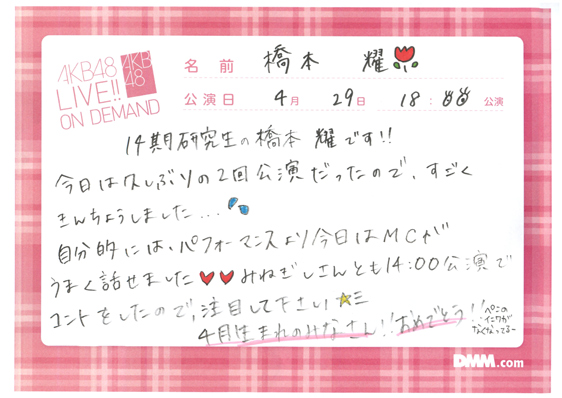 AKB48
LIVE!!
ON DEMAND
AKB
48
名前 橋本 耀
公演日 4月 29日 18:00 公演
14期研究生の橋本 耀です!!
今日は久しぶりの2回公演だったので、すごく
きんちょうしました...
自分的には、パフォーマンスより今日はMCが
うまく話せました♥♥みねぎしさんとも14:00公演で
コントをしたので、注目して下さい☆三
4月生まれのみなさん!!おめでとう!!
ぺこの
イニクが
なくなってるー
DMM.com